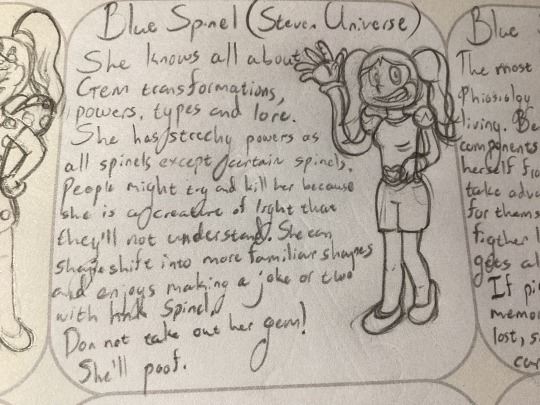 Blue Spinel (Steven Universe)
She knows all about
Gem transformations,
powers, types and lore.
She has strechy powers as
all spinels except certain spinels.
People might try and kill her because
she is a creature of light that
they'll not understand. She can
shapeshift into more familiar shapes
and enjoys making a joke or two
with Spinel.
Don not take out her gem!
She'll poof.
Blue
The most
Phiosiology
living. Be
components
herself fro
take adva
for thems
figther l
goes al
If pi
memor
lost, s
car